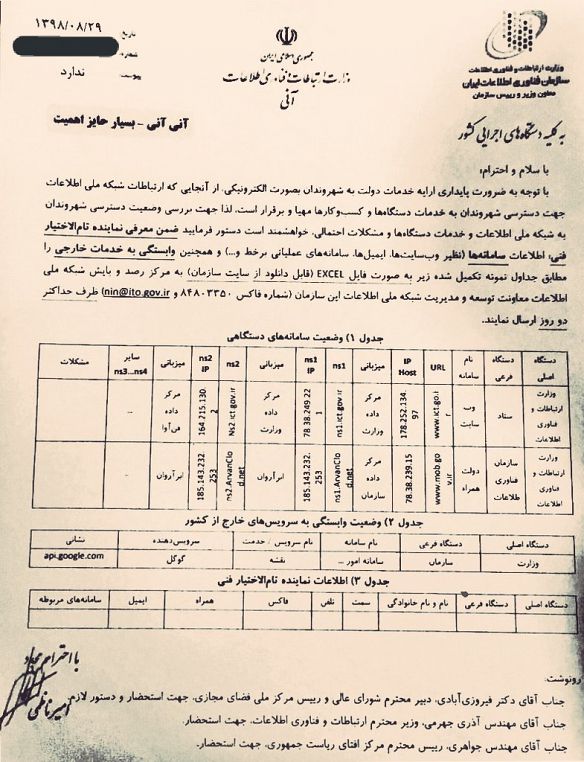 تاریخ ۱۳۹۸/۰۸/۲۹
شماره
پیوست ندارد
جمهوری اسلامی ایران
وزارت ارتباطات و فناوری اطلاعات
آنی
وزارت ارتباطات و فناوری اطلاعات
سازمان فناوری اطلاعات ایران
معاون وزیر و رییس سازمان
آنی آنی - بسیار حایز اهمیت
به کلیه دستگاه‌های اجرایی کشور
با سلام و احترام؛
با توجه به ضرورت پایداری ارایه خدمات دولت به شهروندان بصورت الکترونیکی، از آنجایی که ارتباطات شبکه ملی اطلاعات
جهت دسترسی شهروندان به خدمات دستگاه‌ها و کسب‌وکارها مهیا و برقرار است، لذا جهت بررسی وضعیت دسترسی شهروندان
به شبکه ملی اطلاعات و خدمات دستگاه‌ها و مشکلات احتمالی، خواهشمند است دستور فرمایید ضمن معرفی نماینده تام‌الاختیار
فنی، اطلاعات سامانه‌ها (نظیر وب‌سایت‌ها، ایمیل‌ها، سامانه‌های عملیاتی برخط و...) و همچنین وابستگی به خدمات خارجی را
مطابق جداول نمونه تکمیل شده زیر به صورت فایل EXCEL (قابل دانلود از سایت سازمان) به مرکز رصد و پایش شبکه ملی
اطلاعات معاونت توسعه و مدیریت شبکه ملی اطلاعات این سازمان (شماره فاکس ۸۴۸۰۳۳۵۰ و nin@ito.gov.ir) ظرف حداکثر
دو روز ارسال نمایند.
جدول ۱) وضعیت سامانه‌های دستگاهی
دستگاه اصلی دستگاه فرعی نام سامانه URL IP Host میزبانی ns1 ns1 IP میزبانی ns2 ns2 IP میزبانی سایر ns3...ns4 مشکلات
وزارت ارتباطات و فناوری اطلاعات ستاد وب سایت www.ict.gov.ir 178.252.134.97 مرکز داده وزارت ns1.ict.gov.ir 78.38.249.221 مرکز داده وزارت Ns2.ict.gov.ir 164.215.130.2 مرکز داده فن‌آوا ...
وزارت ارتباطات و فناوری اطلاعات سازمان فناوری اطلاعات دولت همراه www.mob.gov.ir 78.38.239.15 مرکز داده سازمان ns1.ArvanCloud.net 185.143.232.253 ابرآروان ns2.ArvanCloud.net 185.143.232.253 ابرآروان ...
جدول ۲) وضعیت وابستگی به سرویس‌های خارج از کشور
دستگاه اصلی دستگاه فرعی نام سامانه نام سرویس / خدمت سرویس‌دهنده نشانی
وزارت سازمان سامانه امور ... نقشه گوگل api.google.com
جدول ۳) اطلاعات نماینده تام‌الاختیار فنی
دستگاه اصلی دستگاه فرعی نام و نام خانوادگی سمت تلفن فاکس همراه ایمیل سامانه‌های مربوطه
با احترام مجدد
امیر ناظمی
رونوشت:
جناب آقای دکتر فیروزی‌آبادی، دبیر محترم شورای عالی و رییس مرکز ملی فضای مجازی، جهت استحضار و دستور لازم.
جناب آقای مهندس آذری جهرمی، وزیر محترم ارتباطات و فناوری اطلاعات، جهت استحضار.
جناب آقای مهندس جواهری، رییس محترم مرکز افتای ریاست جمهوری، جهت استحضار.